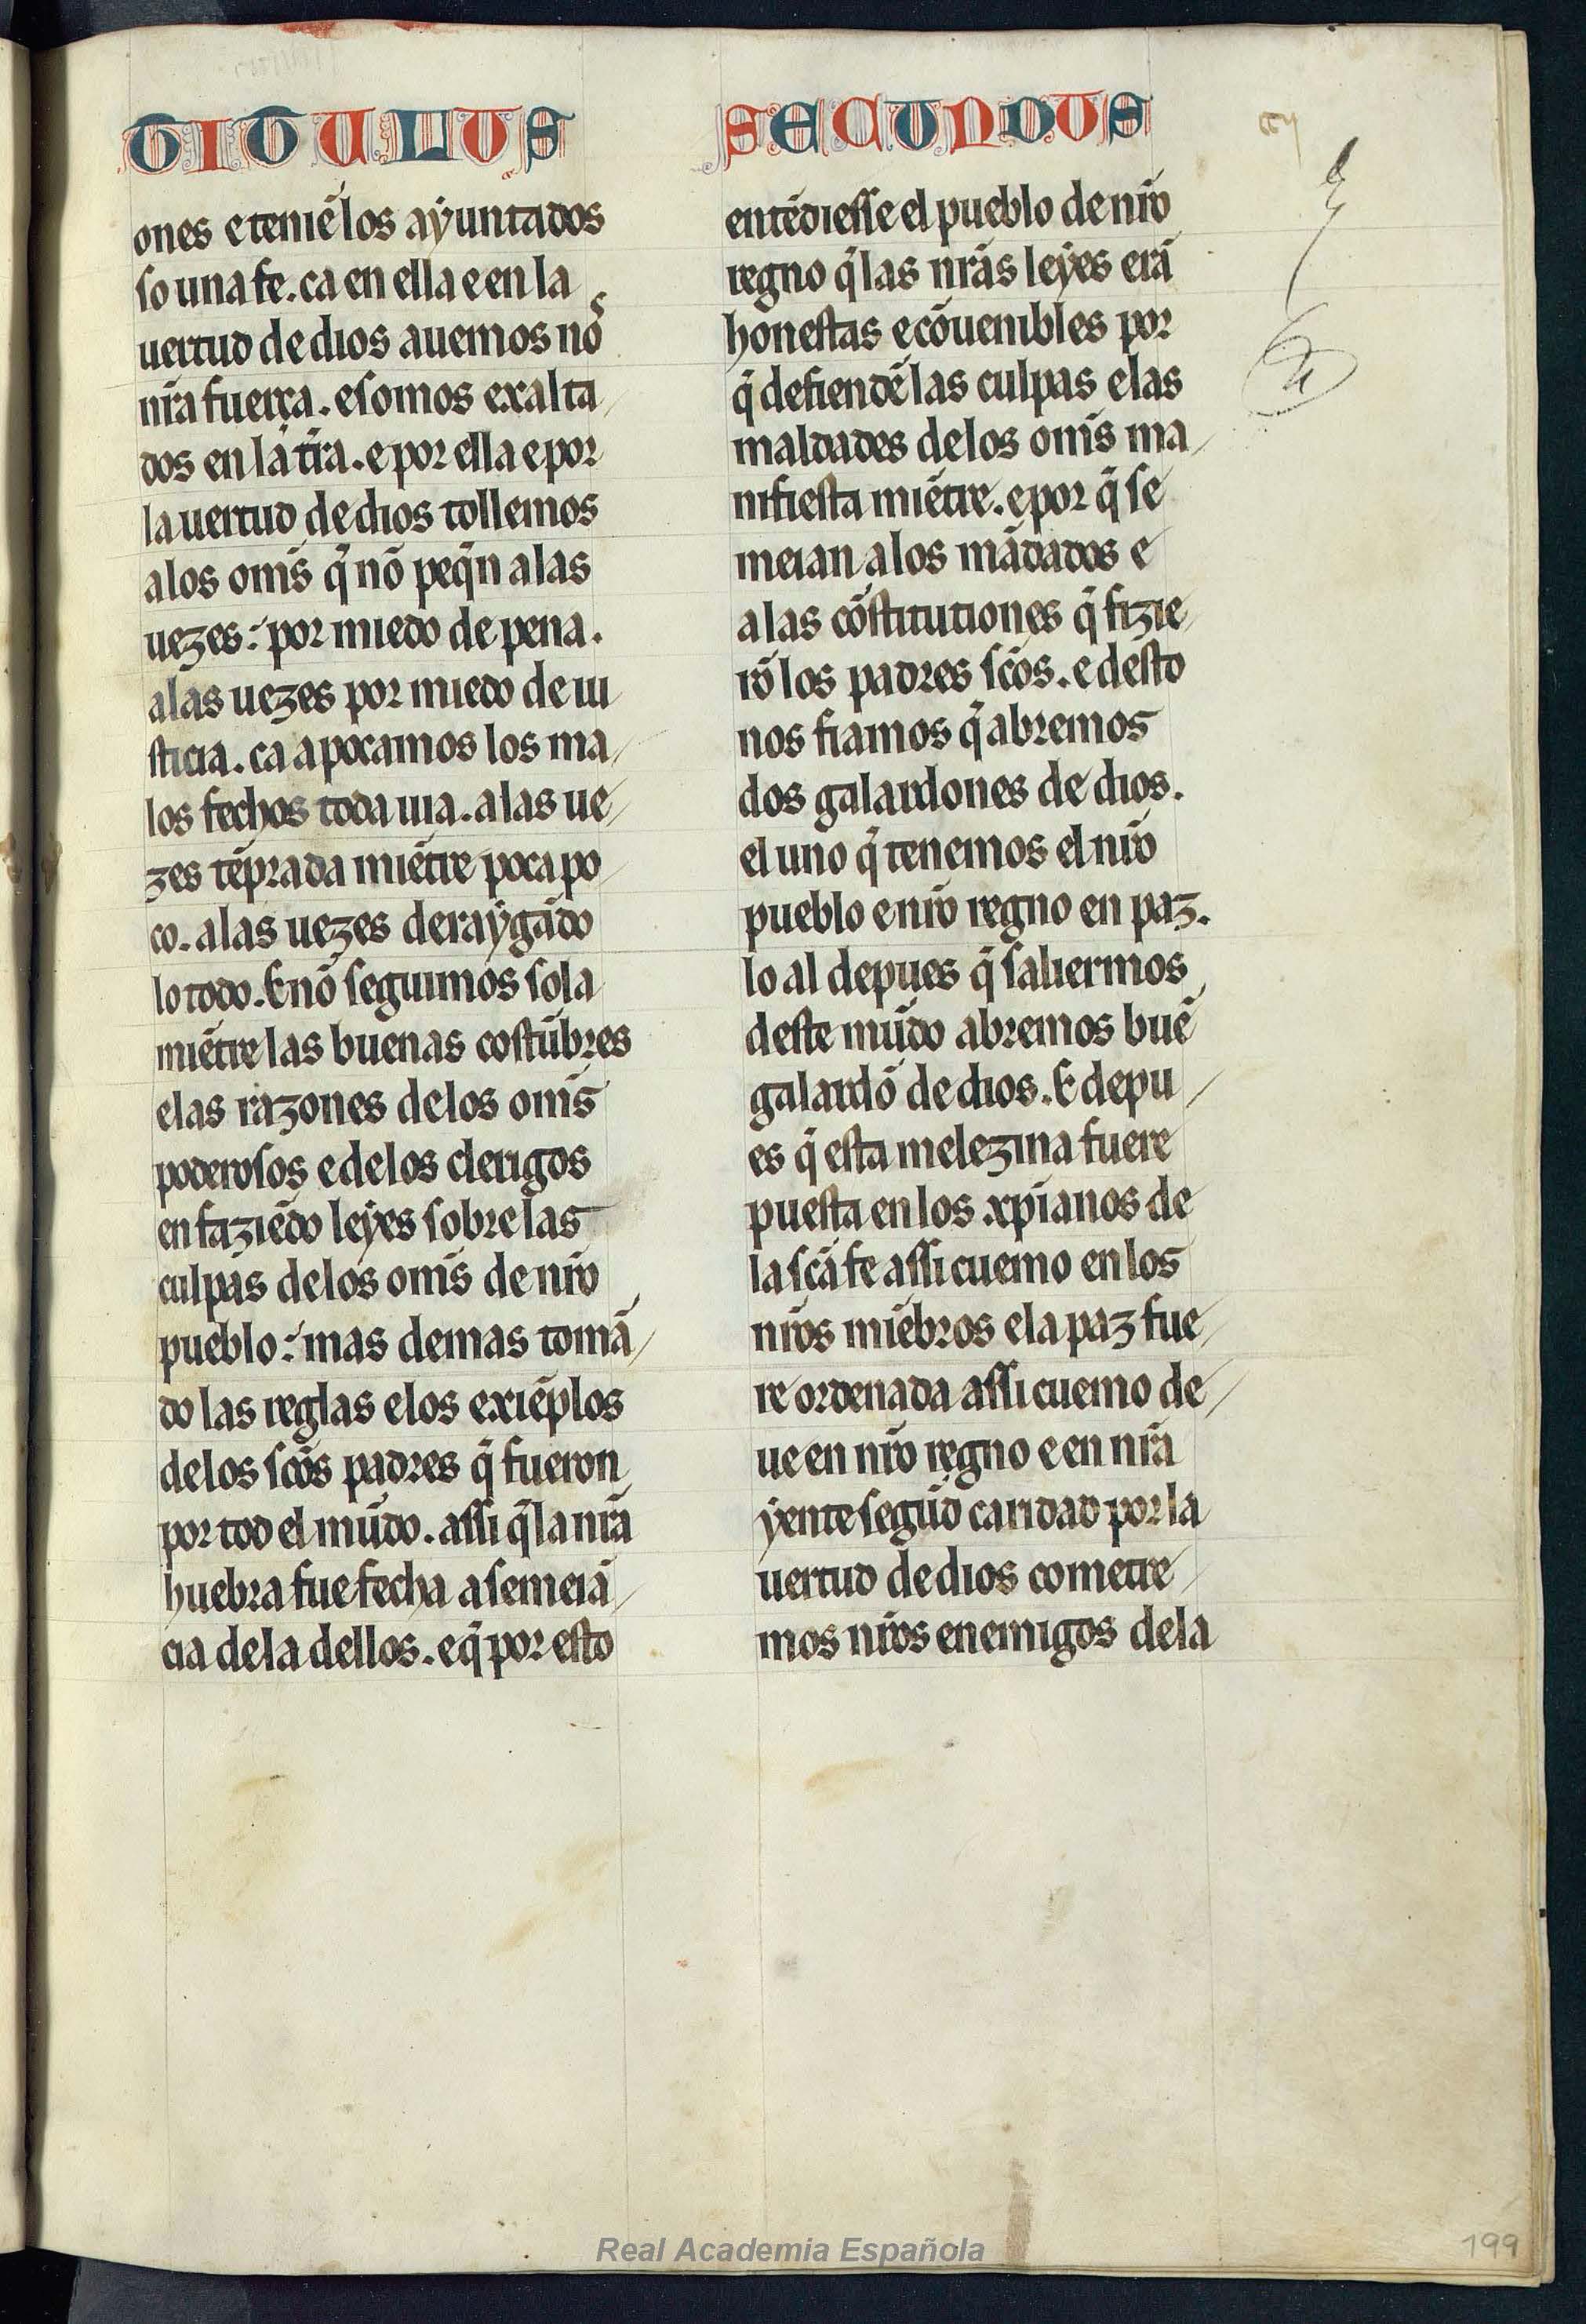 TITULUS
ones e teniẽ los aẏuntados
so una fe. ca en ella e en la
uertud de dios auemos nos
nr̃a fuerça. e somos exalta
dos en la tr̃a. e por ella e por
la uertud de dios tollemos
a los om̃s q̃ nõ peq̃n a las
uezes: por miedo de pena.
a las uezes por miedo de iu
sticia. ca apocamos los ma
los fechos toda uia. a las ue
zes tẽprada miẽtre poca po
co. a las uezes deraẏgãdo
lo todo. E nõ seguimos sola
miẽtre las buenas costũbres
e las razones de los om̃s
poderosos e de los clerigos
en faziẽdo leẏes sobre las
culpas de los om̃s de nr̃o
pueblo: mas demas tomã
do las reglas e los exiẽplos
de los sc̃os padres q̃ fueron
por tod el mũdo. assi q̃ la nr̃a
huebra fue fecha a semeiã
cia de la dellos. e q̃ por esto
SECUNDUS
entẽdiesse el pueblo de nr̃o
regno q̃ las nr̃as leẏes erã
honestas e cõuenibles por
q̃ defiendẽ las culpas e las
maldades de los om̃s ma
nifiesta miẽtre. e por q̃ se
meian a los mãdados e
a las cõstitutiones q̃ fizie
rõ los padres sc̃os. e desto
nos fiamos q̃ abremos
dos galardones de dios.
el uno q̃ tenemos el nr̃o
pueblo e nr̃o regno en paz.
lo al depues q̃ saliermos
deste mũdo abremos buẽ
galardõ de dios. E depu
es q̃ esta melezina fuere
puesta en los xp̃ianos de
la sc̃a fe assi cuemo en los
nr̃os miẽbros e la paz fue
re ordenada assi cuemo de
ue en nr̃o regno e en nr̃a
ẏente segũd caridad por la
uertud de dios cometre
mos nr̃os enemigos de la
Real Academia Española
199